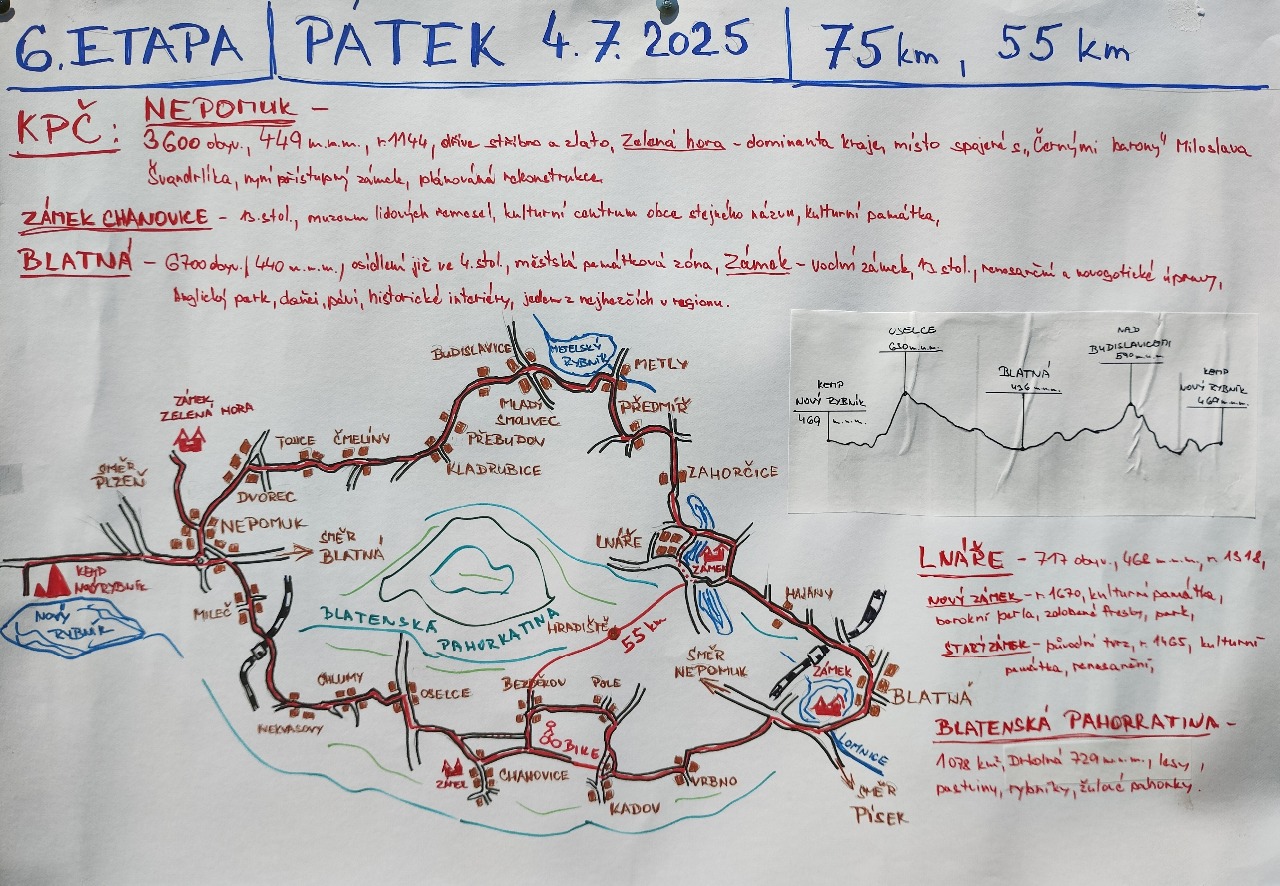 6. ETAPA | PÁTEK 4.7.2025 | 75 km, 55 km
KPČ: NEPOMUK –
3600 obyv., 449 m.n.m., r. 1144, dříve stříbro a zlato, Zelená hora – dominanta kraje, místo spojené s „Černými barony" Miloslava
Švandrlíka, nyní přístupný zámek, plánována rekonstrukce.
ZÁMEK CHANOVICE – 13. stol., muzeum lidových řemesel, kulturní centrum obce stejného názvu, kulturní památka,
BLATNÁ – 6700 obyv., 440 m.n.m., osídlení již ve 4. stol., městská památková zóna, Zámek – vodní zámek, 13 stol., renesanční a novogotické úpravy,
Anglický park, daňci, pávi, historické interiéry, jeden z nejhezčích v regionu.
USELCE
630 m.n.m.
NAD
BUDISLAVICEMI
590 m.n.m.
BLATNÁ
436 m.n.m.
KEMP
NOVÝ RYBNÍK
469 m.n.m.
KEMP
NOVÝ RYBNÍK
469 m.n.m.
BUDISLAVICE
METELSKÝ
RYBNÍK
METLY
MLADÝ
SMOLIVEC
PŘEDMÍŘ
ZÁMEK
ZELENÁ HORA
TOJICE
ČMELÍNY
PŘEBUDOV
KLADRUBICE
ZAHORČICE
SMĚR
PLZEŇ
DVOREC
NEPOMUK
SMĚR
BLATNÁ
LNÁŘE
ZÁMEK
KEMP
NOVÝ RYBNÍK
NOVÝ
RYBNÍK
MILEČ
BLATENSKÁ
PAHORKATINA
HRADIŠTĚ
55 km
HAJANY
SMĚR
NEPOMUK
ZÁMEK
BLATNÁ
LOMNICE
SMĚR
PÍSEK
OHLUMY
NEKVASOVY
OSELCE
BEZDĚKOV
POLE
BIKE
ZÁMEK
CHANOVICE
KADOV
VRBNO
LNÁŘE – 717 obyv., 468 m.n.m., r. 1318,
NOVÝ ZÁMEK – r. 1670, kulturní památka,
barokní perla, zdobené fresky, park,
STARÝ ZÁMEK – původní tvrz, r. 1465, kulturní
památka, renesanční,
BLATENSKÁ PAHORKATINA –
1078 km², Drkolná 729 m.n.m., lesy,
pastviny, rybníky, žulové pahorky.